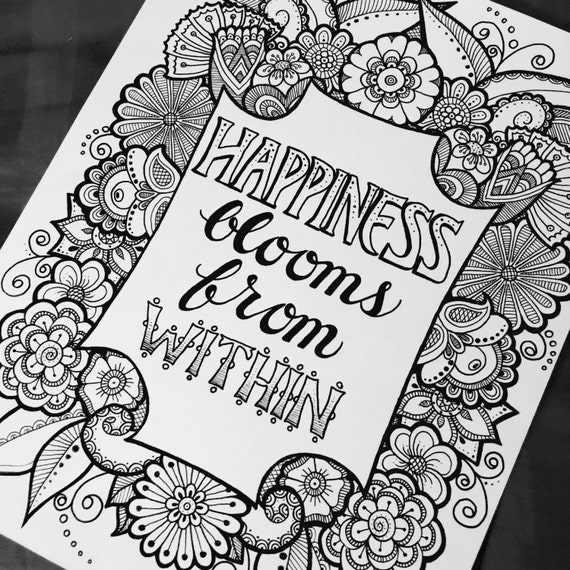 HAPPINESS
blooms
from
WITHIN